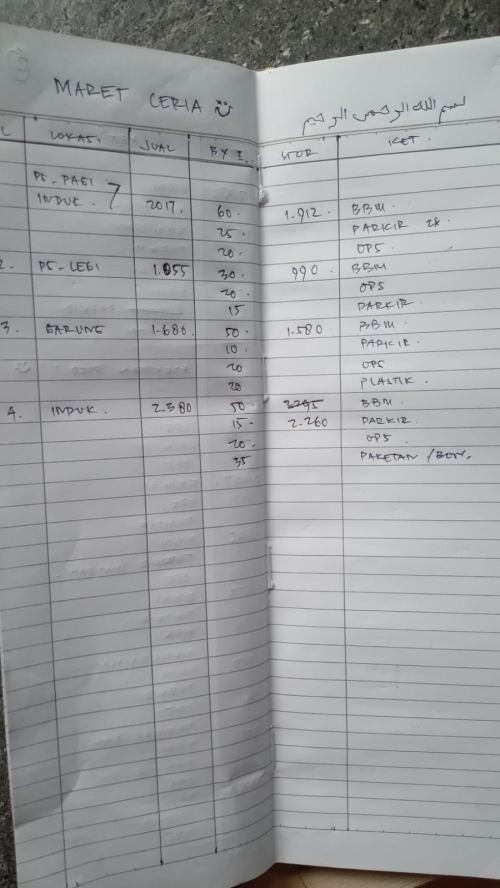 MARET CERIA
بسم الله الرحمن الرحيم
L LOKASI JUAL STOR KET.
PS. PAGI
INDUK. 7 2017. 60. 1.912 BBM.
25 PARKIR 2x.
20. OPS.
2. PS. LEGI 1.055 30. 990 BBM
20. OPS
15 PARKIR.
3. GARUNG 1.680. 50. 1.580 BBM.
10. PARKIR.
20 OPS
20 PLASTIK.
4. INDUK. 2.380 50. 2295 BBM.
15. 2.260 PARKIR.
20. OPS.
35 PAKETAN /BON.